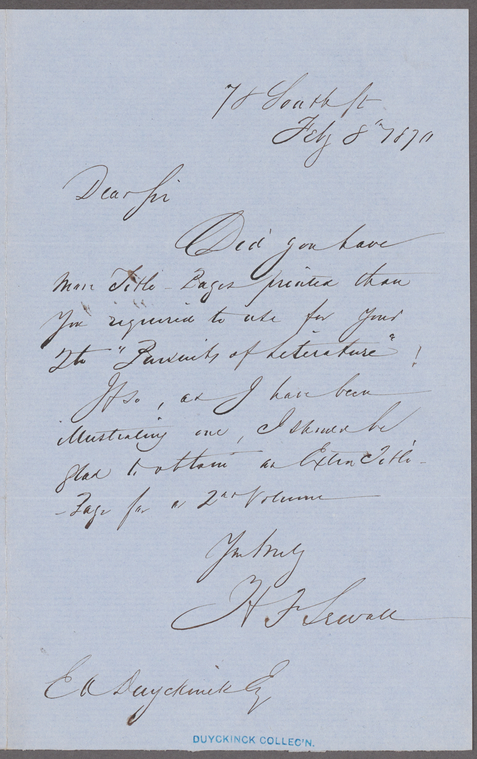 78 South St
Feby 8th 1870
Dear Sir
Did you have
more Title-Pages printed than
you required to use for your
4to "Pursuits of Literature"!
If so, as I have been
illustrating one, I should be
glad to obtain an Extra Title-
-Page for a 2nd Volume
Yours truly
H F Sewall
E A Duyckinck Esq
DUYCKINCK COLLEC'N.